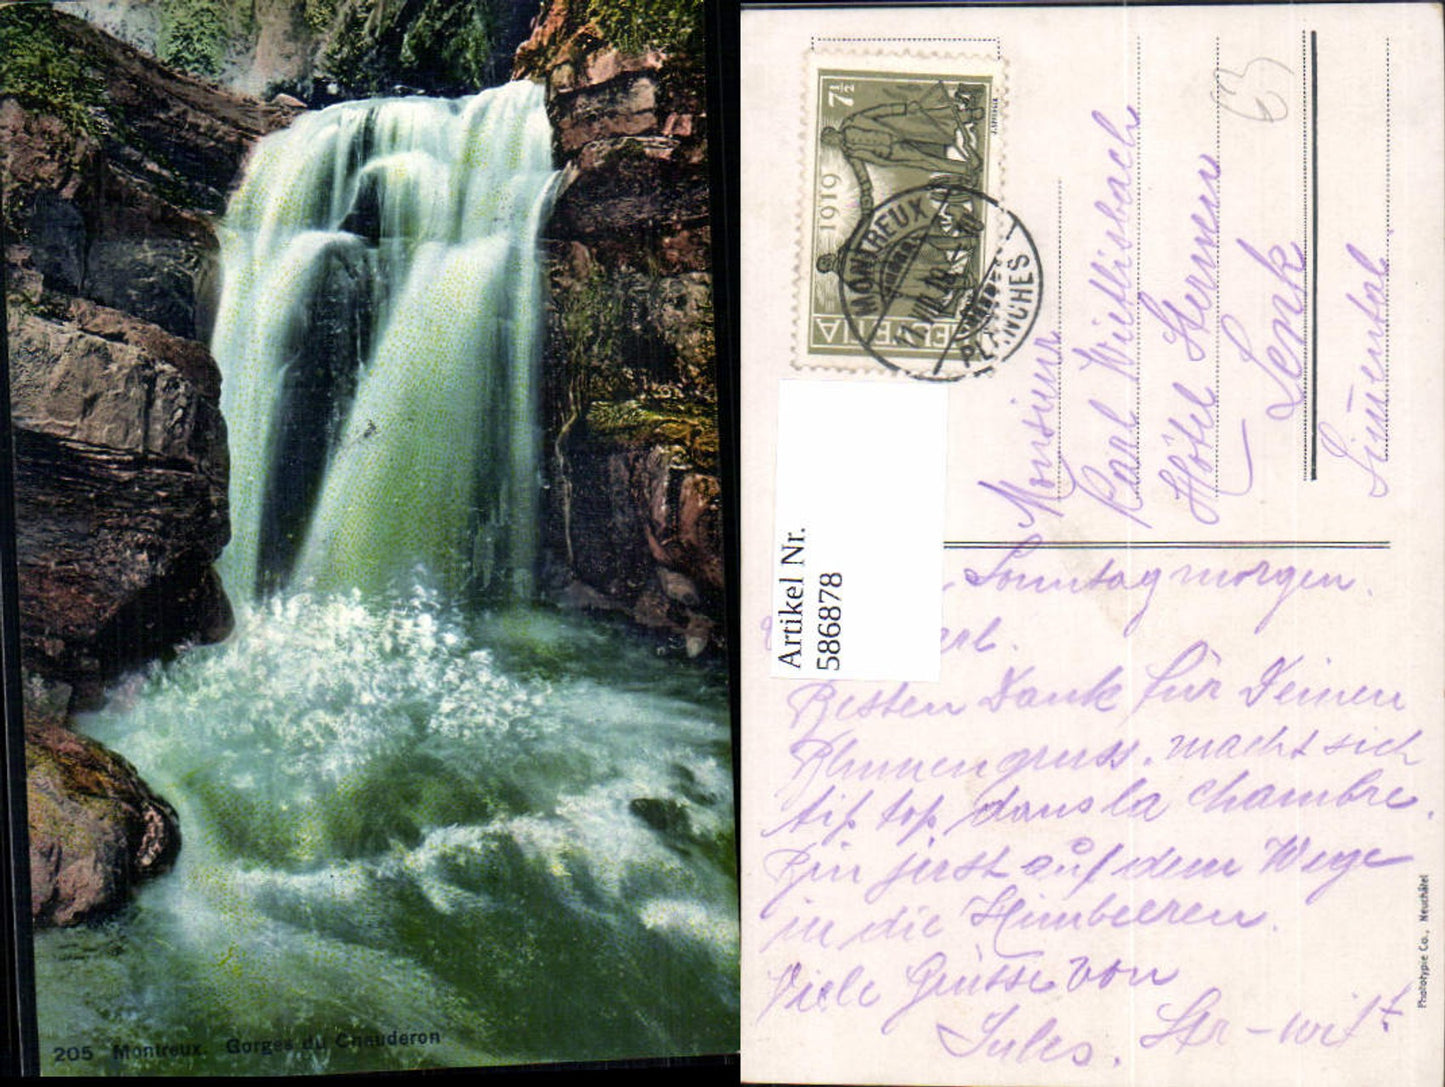 205 Montreux. Gorges du Chauderon
7½
1919
HELVETIA
MONTREUX
PLANCHES
Artikel Nr.
586878
Monsieur
Karl Wietlisbach
Hôtel Sternen
Lenk
Simmental.
Sonntagmorgen.
Besten Dank für Deinen
Blumengruss. macht sich
tip top dans la chambre.
Bin jetzt auf dem Wege
in die Himbeeren.
Viele Grüsse von
Jules.
Phototypie Co., Neuchâtel